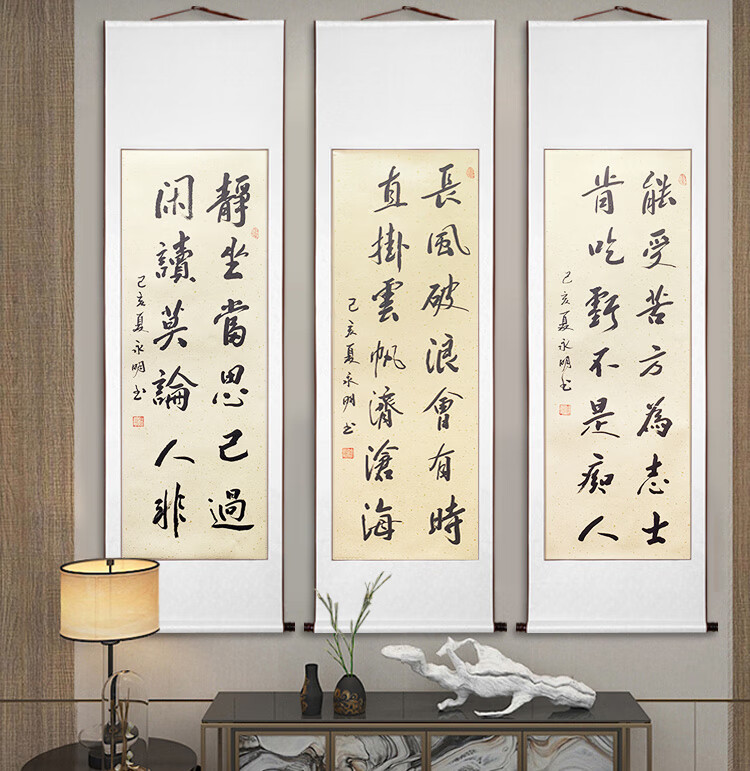 能受苦方為志士
肯吃虧不是痴人
己亥夏永明书
長風破浪會有時
直掛雲帆濟滄海
己亥夏永明书
靜坐當思己過
闲讀莫論人非
己亥夏永明书